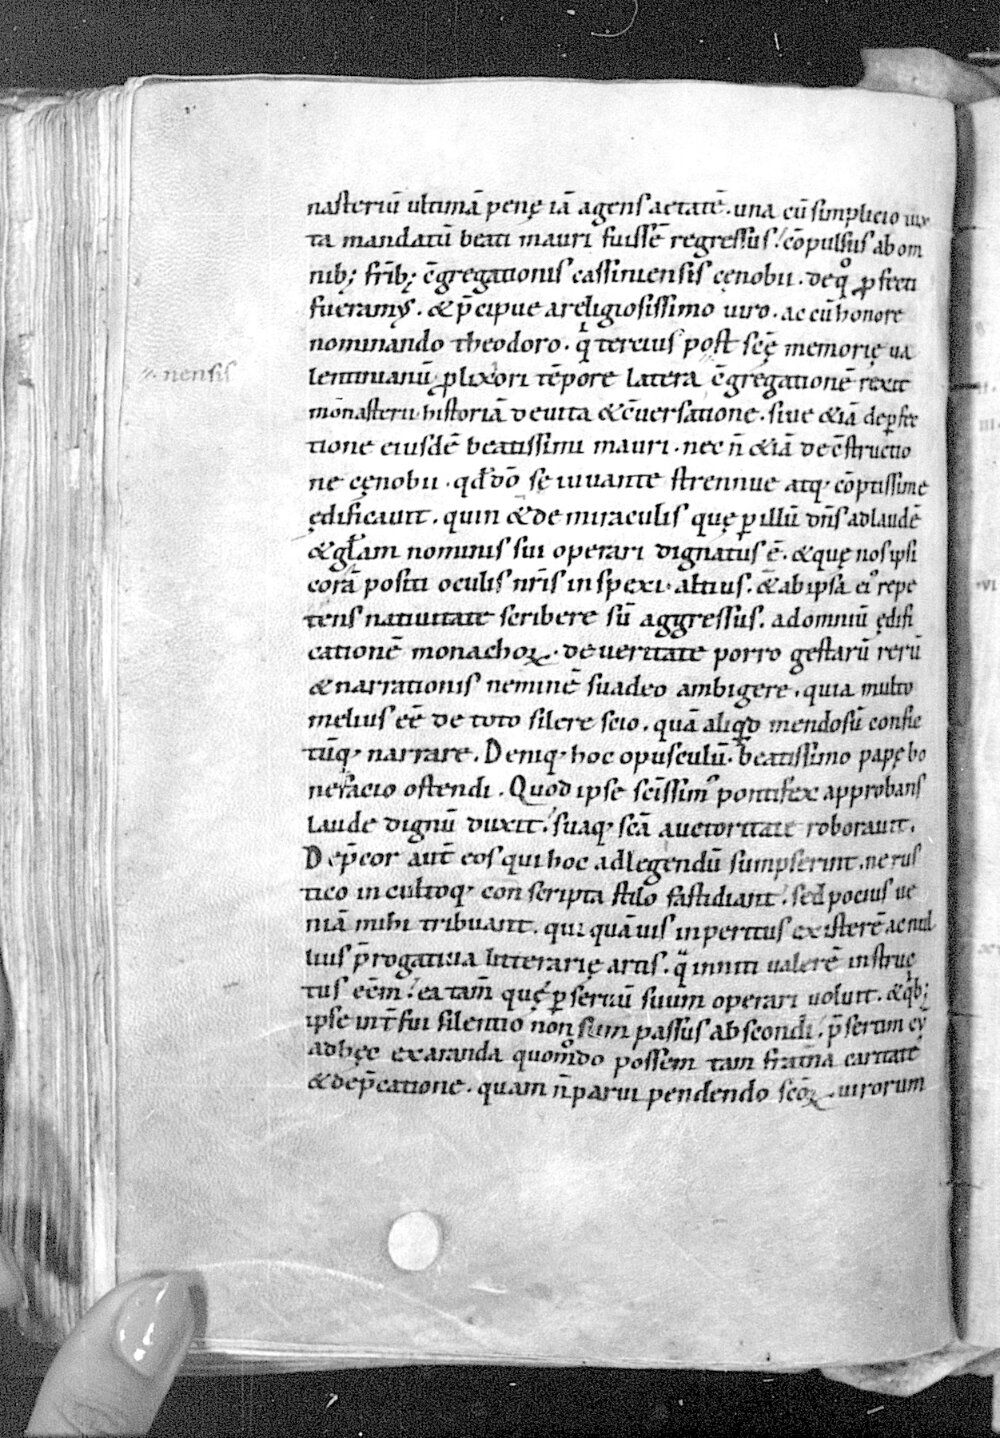 nasteriū ultimā penę iā agens aetatē. una cū simplicio iux
ta mandatū beati mauri fuissē regressus; cōpulsus ab om
nib; frīb; cḡregationis cassiniensis cęnobii. de qͦ ꝓfecti
fuēramꝰ. & p̄cipue a religiosissimo viro. ac cū honore
nominando theodoro. q̇ tercius post scę̄ memorię va
lentinianū ꝓlixori tēpore latera
nensis
c̄gregationē rexit
monasterii historiā de vita & c̄versatione. sive &iā de ꝑfec
tione eiusdē beatissimi mauri. nec n̄ &iā de c̄structio
ne cęnobii. qđ dō se iuvante strennue atq; cōptissime
ędificavit. quin & de miraculis quę ꝑ illū dn̄s ad laudē
& gl̄am nominis sui operari dignatus ē. & quę nos ipsi
corā positi oculis nr̄is inspexi. altius. & ab ipsa ei° repe
tens nativitate scribere sū aggressus. ad omniū ędifi
cationē monachoꝝ. de veritate porro gestarū rerū
& narrationis neminē suadeo ambigere. quia multo
melius eē de toto silere scio. quā aliqd mendosū confic
tūq; narrare. Deniq; hoc opusculū. beatissimo papę bo
nefacio ostendi. Quod ipse scīssimꝰ pontifex approbans
laude dignū duxit. suaq; scā auctoritate roboravit.
Dep̄cor aut̄ eos qui hoc ad legendū sumpserint. ne rus
tico incultoq; conscripta stilo fastidiant. sed pocius ve
niā mihi tribuant. qui quā vis inperitus existerē ac nul
lius p̄rogativa litterarię artis. q̄ inniti valerē instruc
tus eēm. ea tam̄ quę ꝑ servū suum operari voluit. & qͥb;
ipse int̄fui silentio non sum passus abscondi. p̄sertim cū
ad hęc exaranda quomͦdo possem tam frat̄na caritate
& dep̄catione. quam n̄ parvi pendendo scōꝝ. virorum